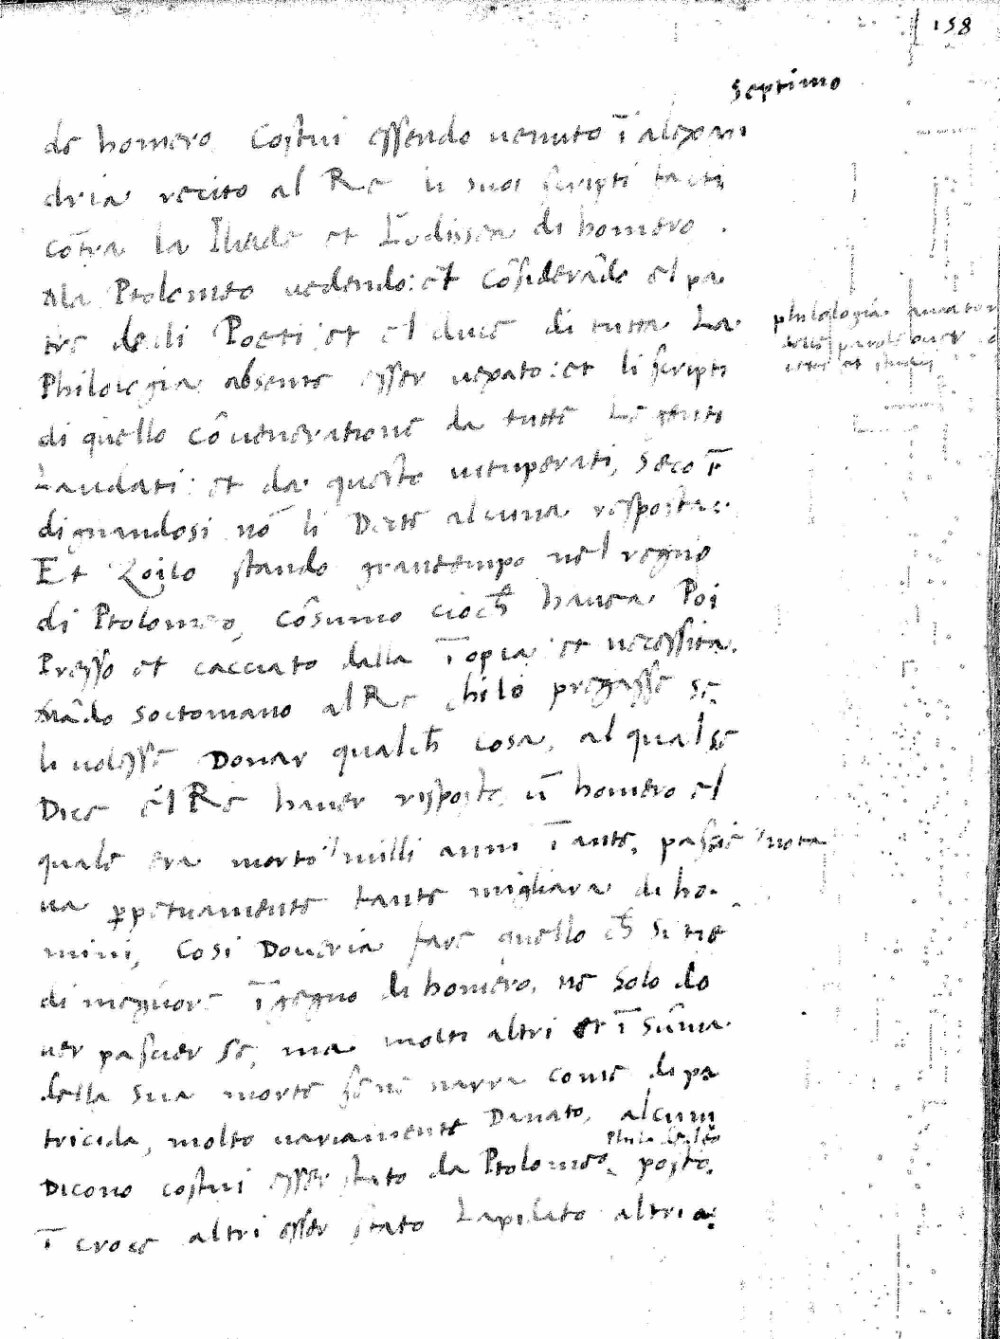 158
septimo
de homero Costui essendo uenuto ī alexan
dria recito al Re li suoi scripti facti
cōtra la Iliade et Lodissea di homero .
Ma Ptolomeo uedendo: et cōsiderādo el pa
tre de li Poeti: et el duce di tutta La
philologia amator
Philologia absente esser uexato: et li scripti
di quello cōueneratione da tutte le genti
Laudati: et da questo uituperati, seco ī
dignandosi nō li Dete alcuna resposta:
Et Zoilo stando grantempo nel regno
di Ptolomeo, cōsumo cioch̄ hauea. Poi
Presso et cacciato dalla īopia et necessita.
mādo soctomano al Re chilo pregasse se
li uolesse Donar qualch̄ cosa, al quale
Dice el Re hauer risposto, ū homero el
quale era morto milli anni īante, pascie nota
ua ꝑpetuamente tante migliara di ho-
mini, Cosi Doueria fare quello ch̄ si tie
di meglior īgegno di homero. ne solo do
uer pascier se, ma molti altri et ī sūma
della sua morte se ne narra come di pa
tricida, molto uariamente Danato, alcuni
Dicono costui esser stato da Ptolomeo posto
ī croce altri esser stato Lapidato altri a: